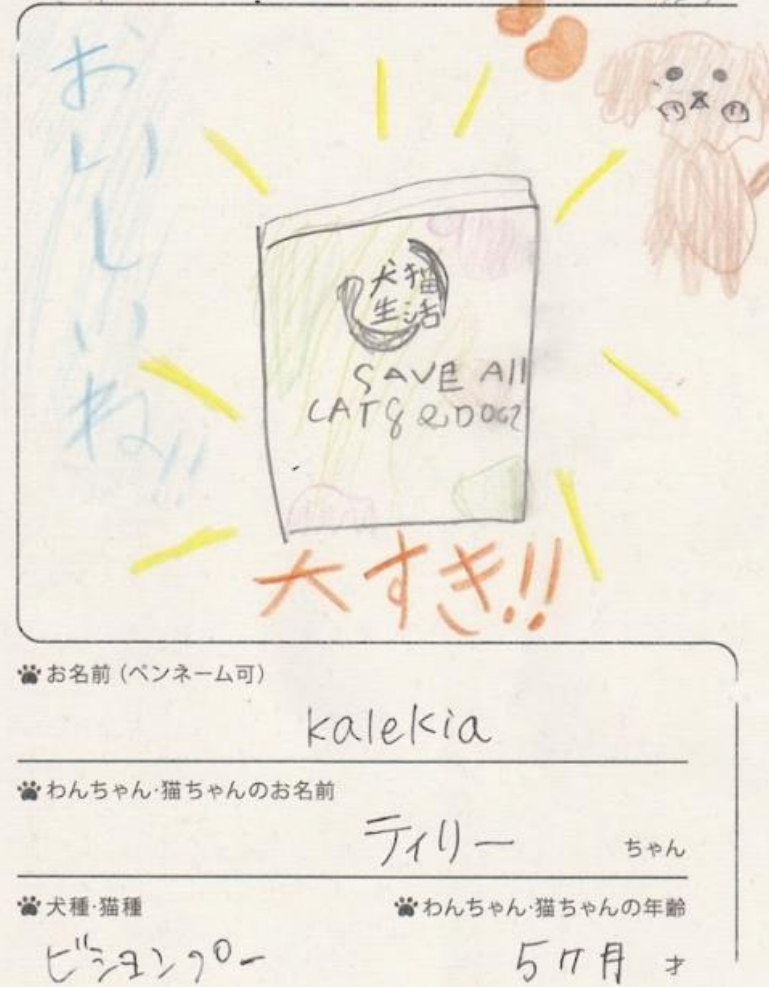 おいしいね!!
犬猫
生活
SAVE All
CATS & DOGS
大すき!!
お名前（ペンネーム可）
kalekia
わんちゃん・猫ちゃんのお名前
ティリー ちゃん
犬種・猫種 わんちゃん・猫ちゃんの年齢
ビションプー 5ヶ月 才